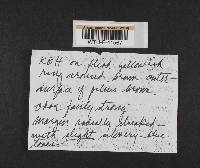 KOH on flesh yellowish
ring around brown outer
surface of pileus brown
odor fairly strong
margin radially streaked
with slight silvery-blue
tones